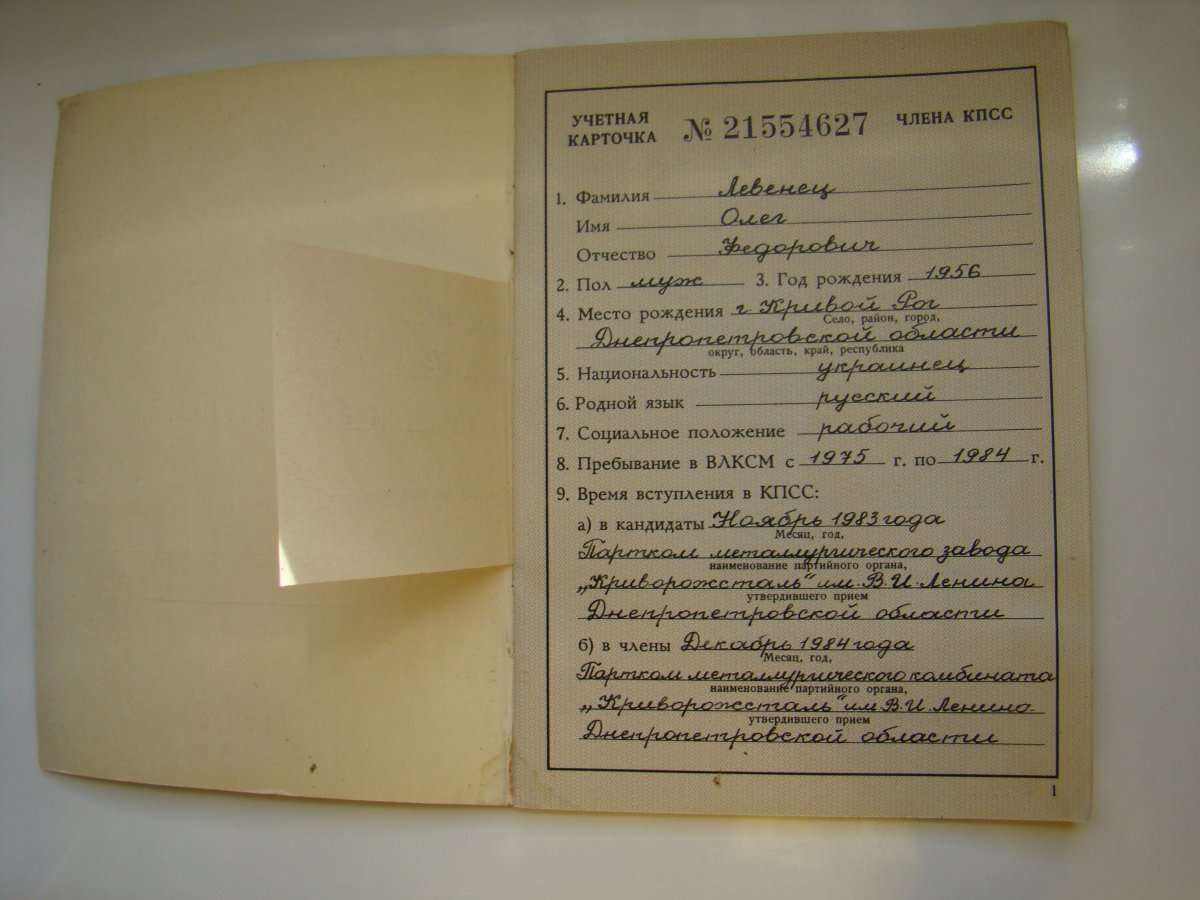 УЧЕТНАЯ КАРТОЧКА № 21554627 ЧЛЕНА КПСС
1. Фамилия Левенец
Имя Олег
Отчество Федорович
2. Пол муж 3. Год рождения 1956
4. Место рождения г. Кривой Рог
Село, район, город,
Днепропетровской области
округ, область, край, республика
5. Национальность украинец
6. Родной язык русский
7. Социальное положение рабочий
8. Пребывание в ВЛКСМ с 1975 г. по 1984 г.
9. Время вступления в КПСС:
а) в кандидаты Ноябрь 1983 года
Месяц, год,
Партком металлургического завода
наименование партийного органа,
„Криворожсталь" им. В. И. Ленина
утвердившего прием
Днепропетровской области
б) в члены Декабрь 1984 года
Месяц, год,
Партком металлургического комбината
наименование партийного органа,
„Криворожсталь" им. В. И. Ленина
утвердившего прием
Днепропетровской области
1